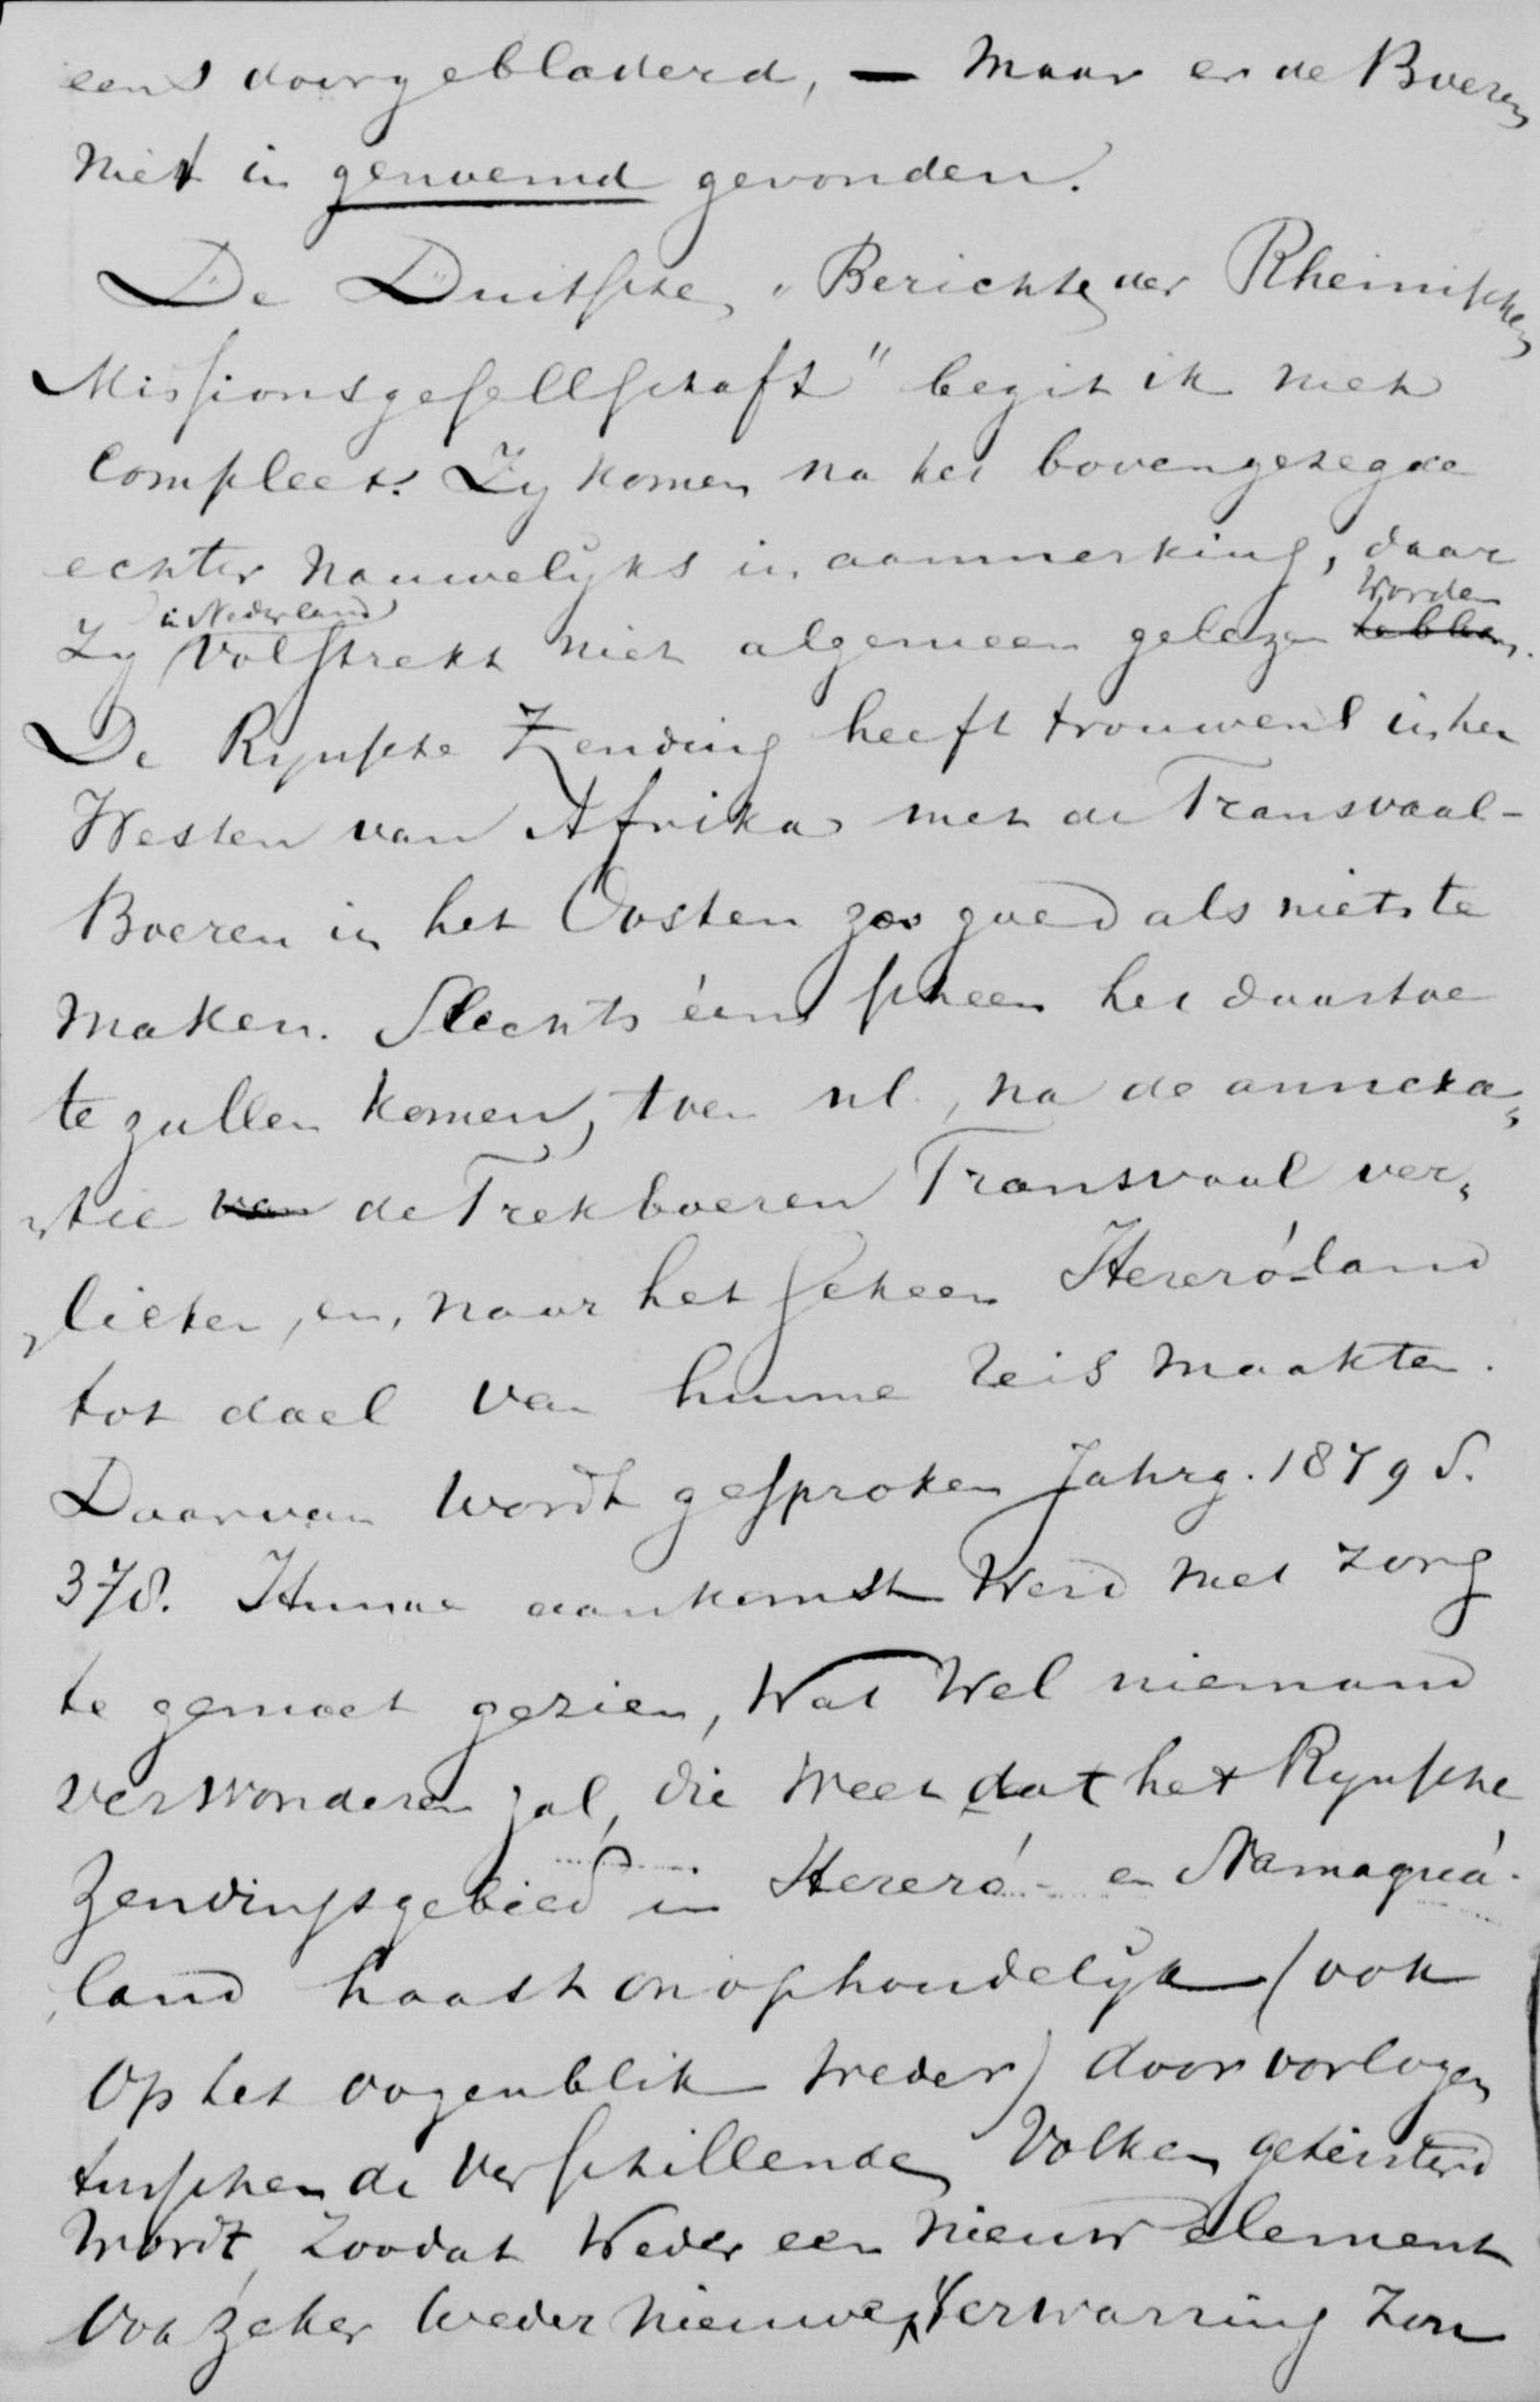 eens doorgebladerd, — maar er de Boeren
niet in genoemd gevonden.
De Duitsche „Berichte der Rheinischen
Missionsgesellschaft" bezit ik niet
compleet. Zy komen na het bovengezegde
echter nauwelyks in aanmerking, daar
zy in Nederland volstrekt niet algemeen gelezen worden hebben.
De Rynsche Zending heeft trouwens in het
Westen van Afrika met de Transvaal-
Boeren in het Oosten zoo goed als niets te
maken. Slechts ééns scheen het daartoe
te zullen komen, toen nl., na de annexa-
tie van de Trekboeren Transvaal ver-
lieten, en, naar het scheen Hereró-land
tot doel van hunne reis maakten.
Daarvan wordt gesproken Jahrg. 1879 S.
378. Hunne aankomst werd met zorg
te gemoet gezien, wat wel niemand
verwonderen zal, die weet dat het Rynsche
Zendingsgebied in Hereró- en Namaquá-
land haast onophoudelyk (ook
op het oogenblik weder) door oorlogen
tusschen de verschillende volken geteisterd
wordt, zoodat weder een nieuw element
ook zeker weder nieuwe verwarring zou